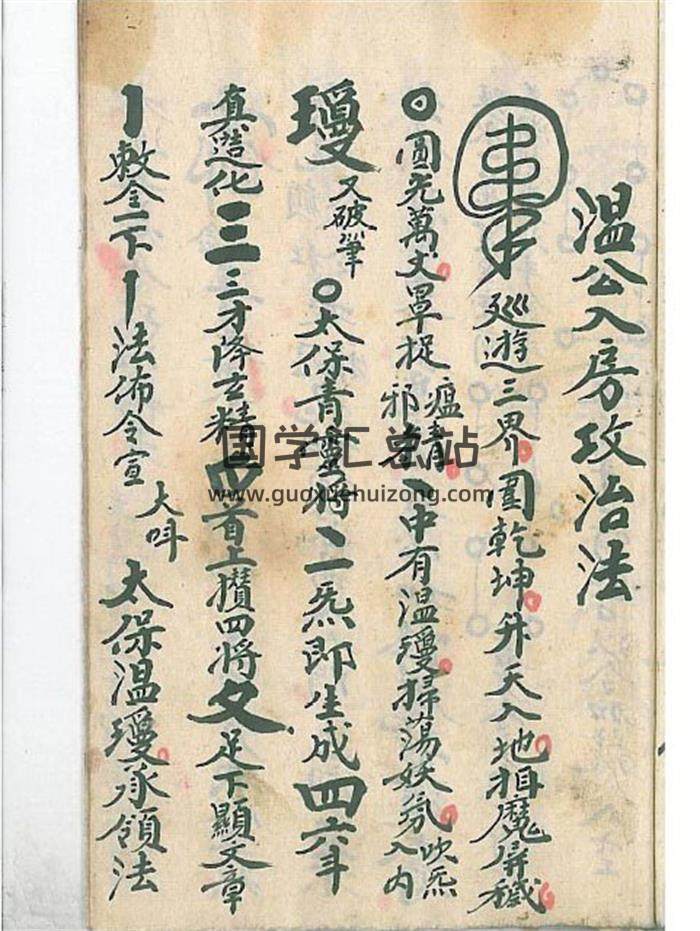 温公入房攻治法
廵遊三界圍乾坤升天入地揖魔屏穢
〇圓光萬丈罩捉瘟精邪 丶中有温瓊掃蕩妖氛吹炁入内
瓊又破筆〇太保青靈將二炁即生成四六斗
真造化三三才降吉精四首上攢四将夂足下顯文章
丨敕令一下丨法佈令宣大呌太保温瓊承領法
国学汇总站
www.guoxuehuizong.com